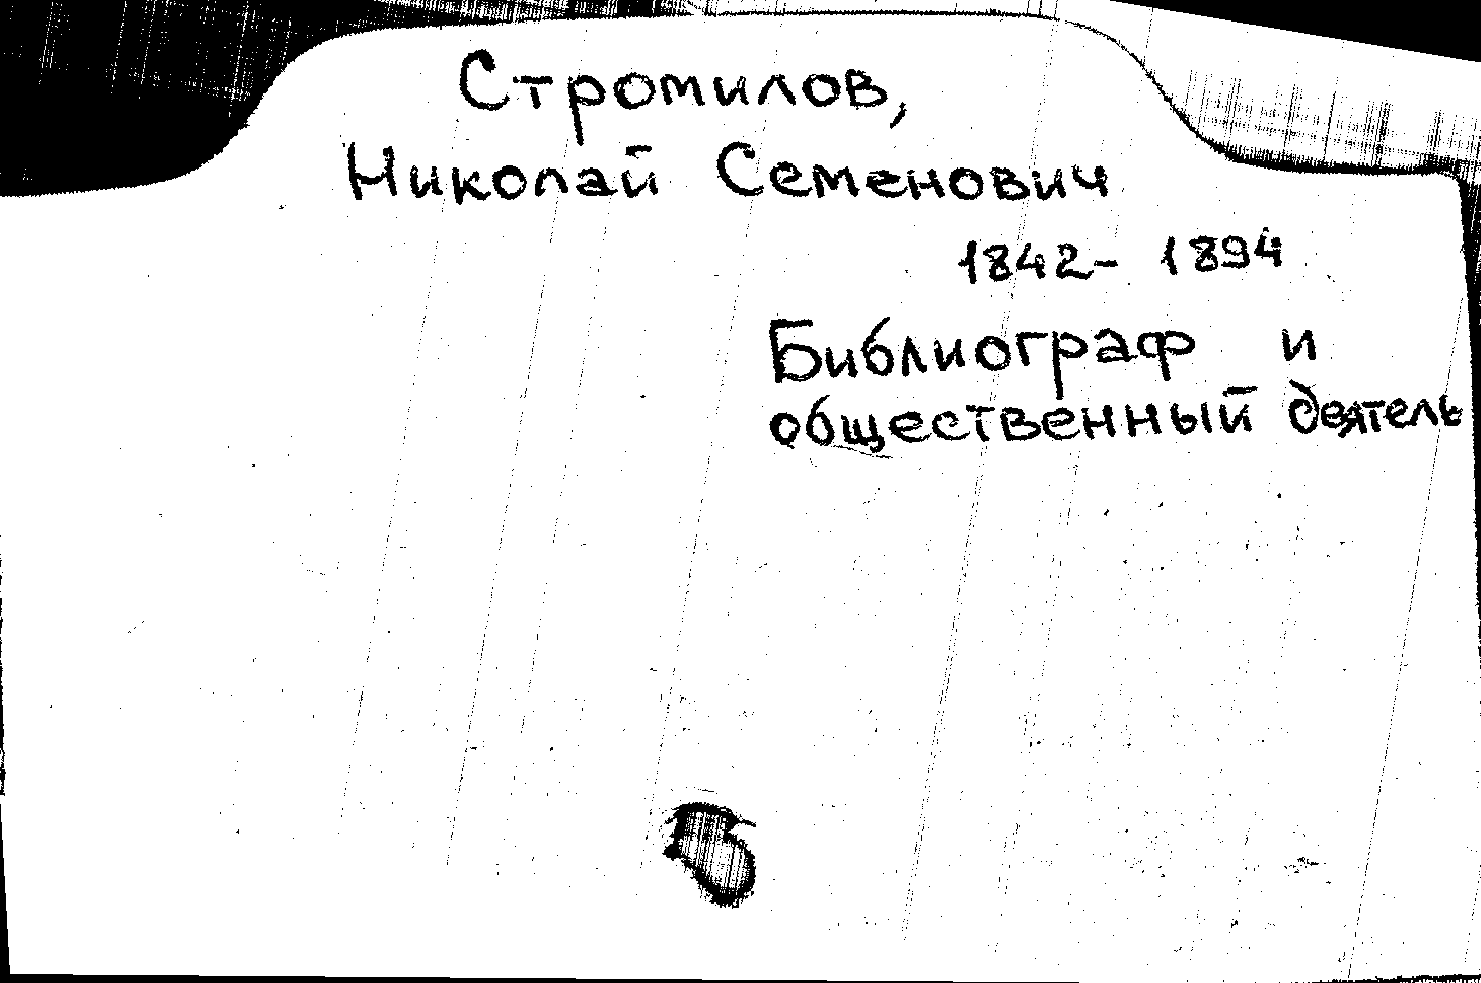 Стромилов,
Николай Семенович
1842- 1894
Библиограф и
общественный деятель